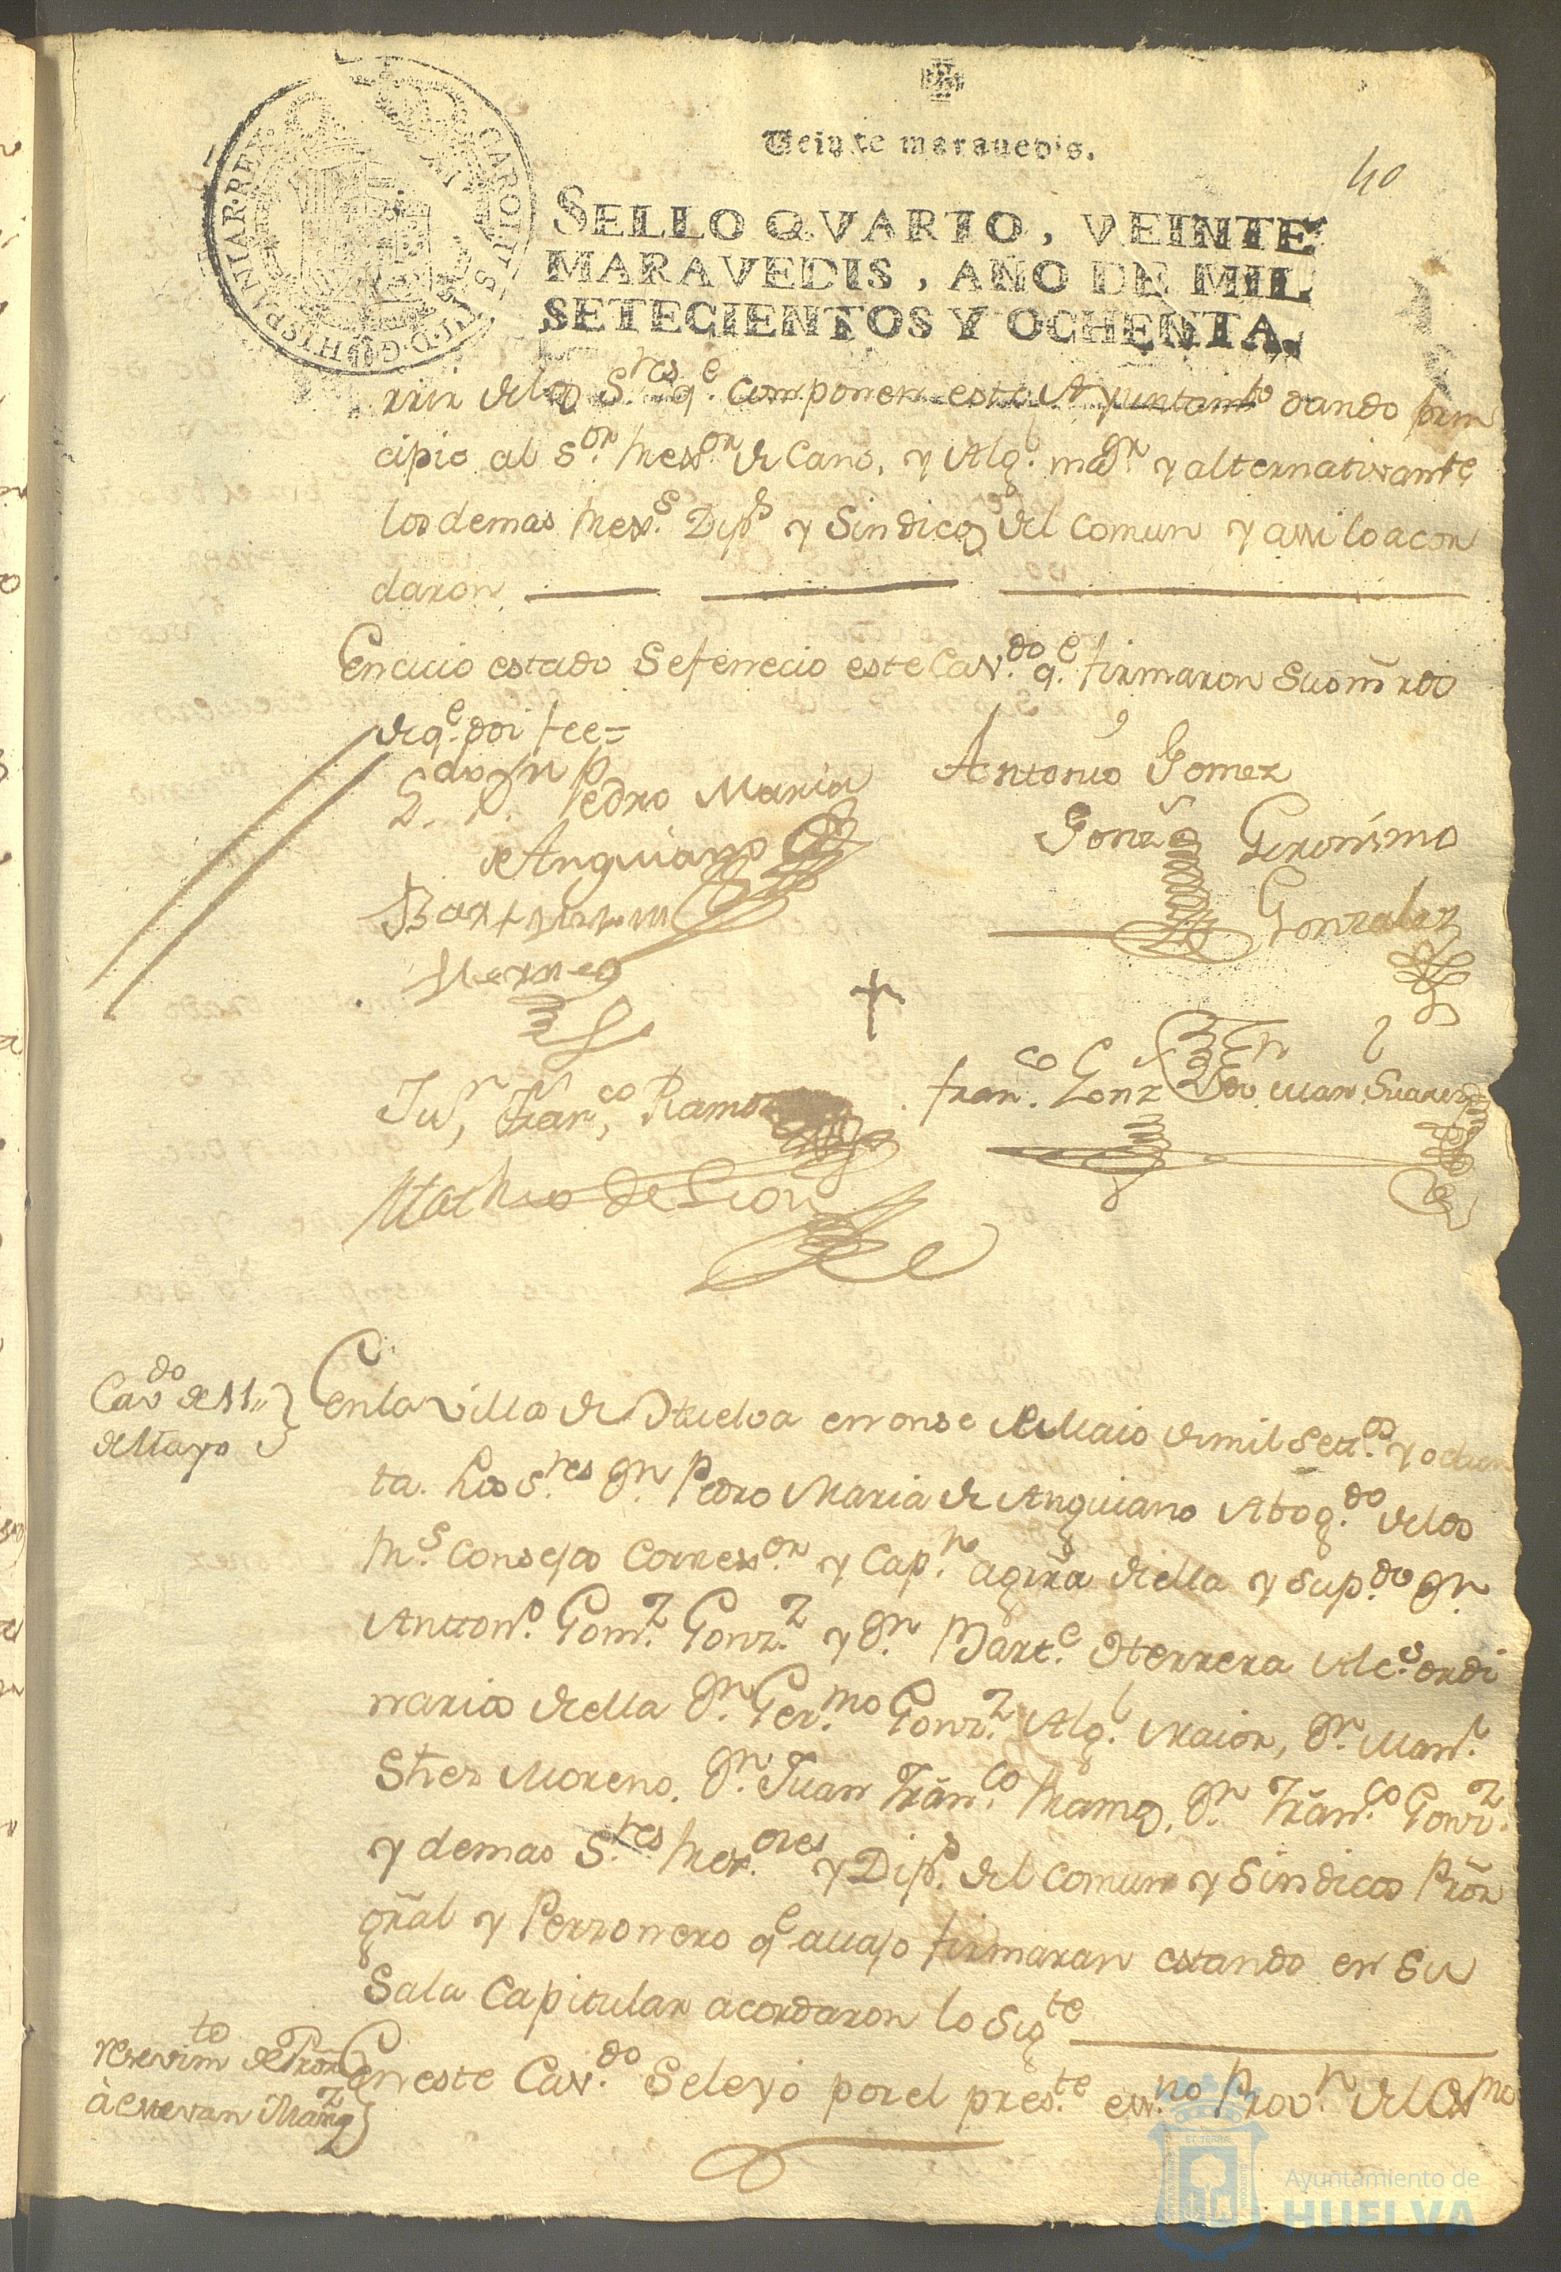 Veinte maravedis.
40
SELLO QVARTO, VEINTE
MARAVEDIS, AÑO DE MIL
SETECIENTOS Y OCHENTA.
CAROLUS III D.G. HISPANIAR. REX
rrir de los S.res q.e componen este Ayuntam.to dando prin
cipio al S.or Rex.or de Cano, y Alg.l ma.or y alternativam.te
los demas Rex.s Dip.s y Sindicos del Comun y assi lo acor
daron
En cuio estado se fenecio este Cav.do q.e firmaron sus m̃rds
de q.e doi fee=
L.do D.n Pedro Maria
de Anguiano
Antonio Gomez
Gonz.z
Geronimo
Gonzalez
Bartolome
Ju.n Fran.co Ramos
Fran.co Gonz.z
Juan Suarez
Matheo de Leon
Cav.do de 11
de Mayo
En la Villa de Huelva en onse de Maio de mil Set.os y ochen
ta. Los S.res D.n Pedro Maria de Anguiano Abog.do de los
R.s Consejos Correx.or y Cap.n a grã della y su p.do D.n
Antton.o Gom.z Gonz.z y D.n Bart.e Herrera Alc.s ordi
narios della D.n Ger.mo Gonz.z Alg.l Maior, D.n Man.l
Shez Moreno, D.n Juan Fran.co Ramos, D.n Fran.co Gonz.z
y demas S.res Rex.ores y Dip.s del Comun y Sindicos Prõr
grãl y Perzonero q.e avajo firmaran estando en su
Sala Capitular acordaron lo sig.te
resevim.to de Prõr
à Estevan Marq.z
En este Cav.do se leyó por el pres.te ess.no Prov.n del Ex.mo
Ayuntamiento de
HUELVA